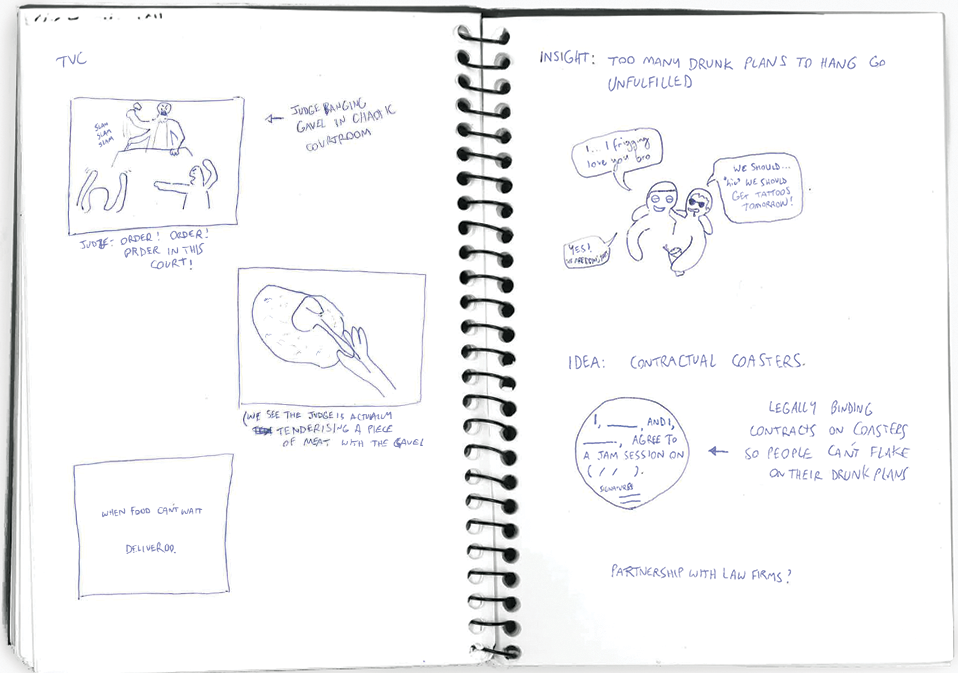 TVC
SLAM
SLAM
SLAM
← JUDGE BANGING
GAVEL IN CHAOTIC
COURTROOM
JUDGE: ORDER! ORDER!
ORDER IN THIS
COURT!
(WE SEE THE JUDGE IS ACTUALLY
TENDERISING A PIECE
OF MEAT WITH THE GAVEL
WHEN FOOD CAN'T WAIT
DELIVEROO.
INSIGHT: TOO MANY DRUNK PLANS TO HANG GO
UNFULFILLED
I... I frigging
love you bro
WE SHOULD...
*hic* WE SHOULD
GET TATTOOS
TOMORROW!
YES!
IDEA: CONTRACTUAL COASTERS.
I, ____, AND I,
____, AGREE TO
A JAM SESSION ON
( / / ).
SIGNATURES
← LEGALLY BINDING
CONTRACTS ON COASTERS
SO PEOPLE CAN'T FLAKE
ON THEIR DRUNK PLANS
PARTNERSHIP WITH LAW FIRMS?